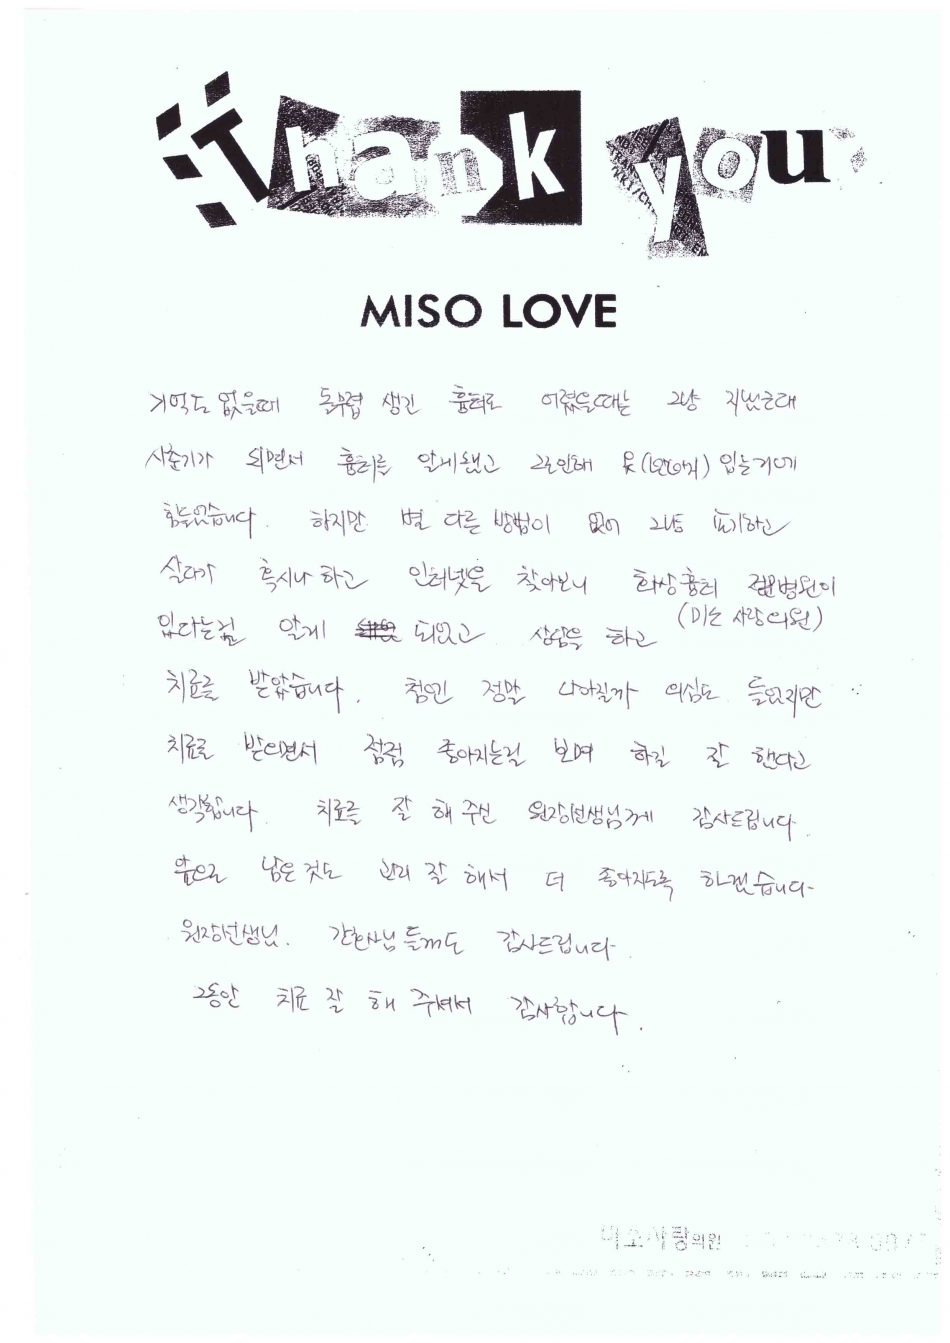 Thank you
MISO LOVE
기억도 없을때 돌무렵 생긴 흉터로 어렸을때는 그냥 지냈는데
사춘기가 되면서 흉터를 알게됐고 그로인해 옷(반바지) 입는거에
힘들었습니다. 하지만 별 다른 방법이 없어 그냥 포기하고
살다가 혹시나 하고 인터넷을 찾아보니 화상흉터 전문병원이
(미소사랑의원)
있다는걸 알게 되었고 상담을 하고
치료를 받았습니다. 첨엔 정말 나아질까 의심도 들었지만
치료를 받으면서 점점 좋아지는걸 보며 하길 잘 했다고
생각합니다. 치료를 잘 해 주신 원장선생님께 감사드립니다.
앞으로 남은것도 관리 잘 해서 더 좋아지도록 하겠습니다.
원장선생님. 간호사님들께도 감사드립니다.
그동안 치료 잘 해 주셔서 감사합니다.
미소사랑의원